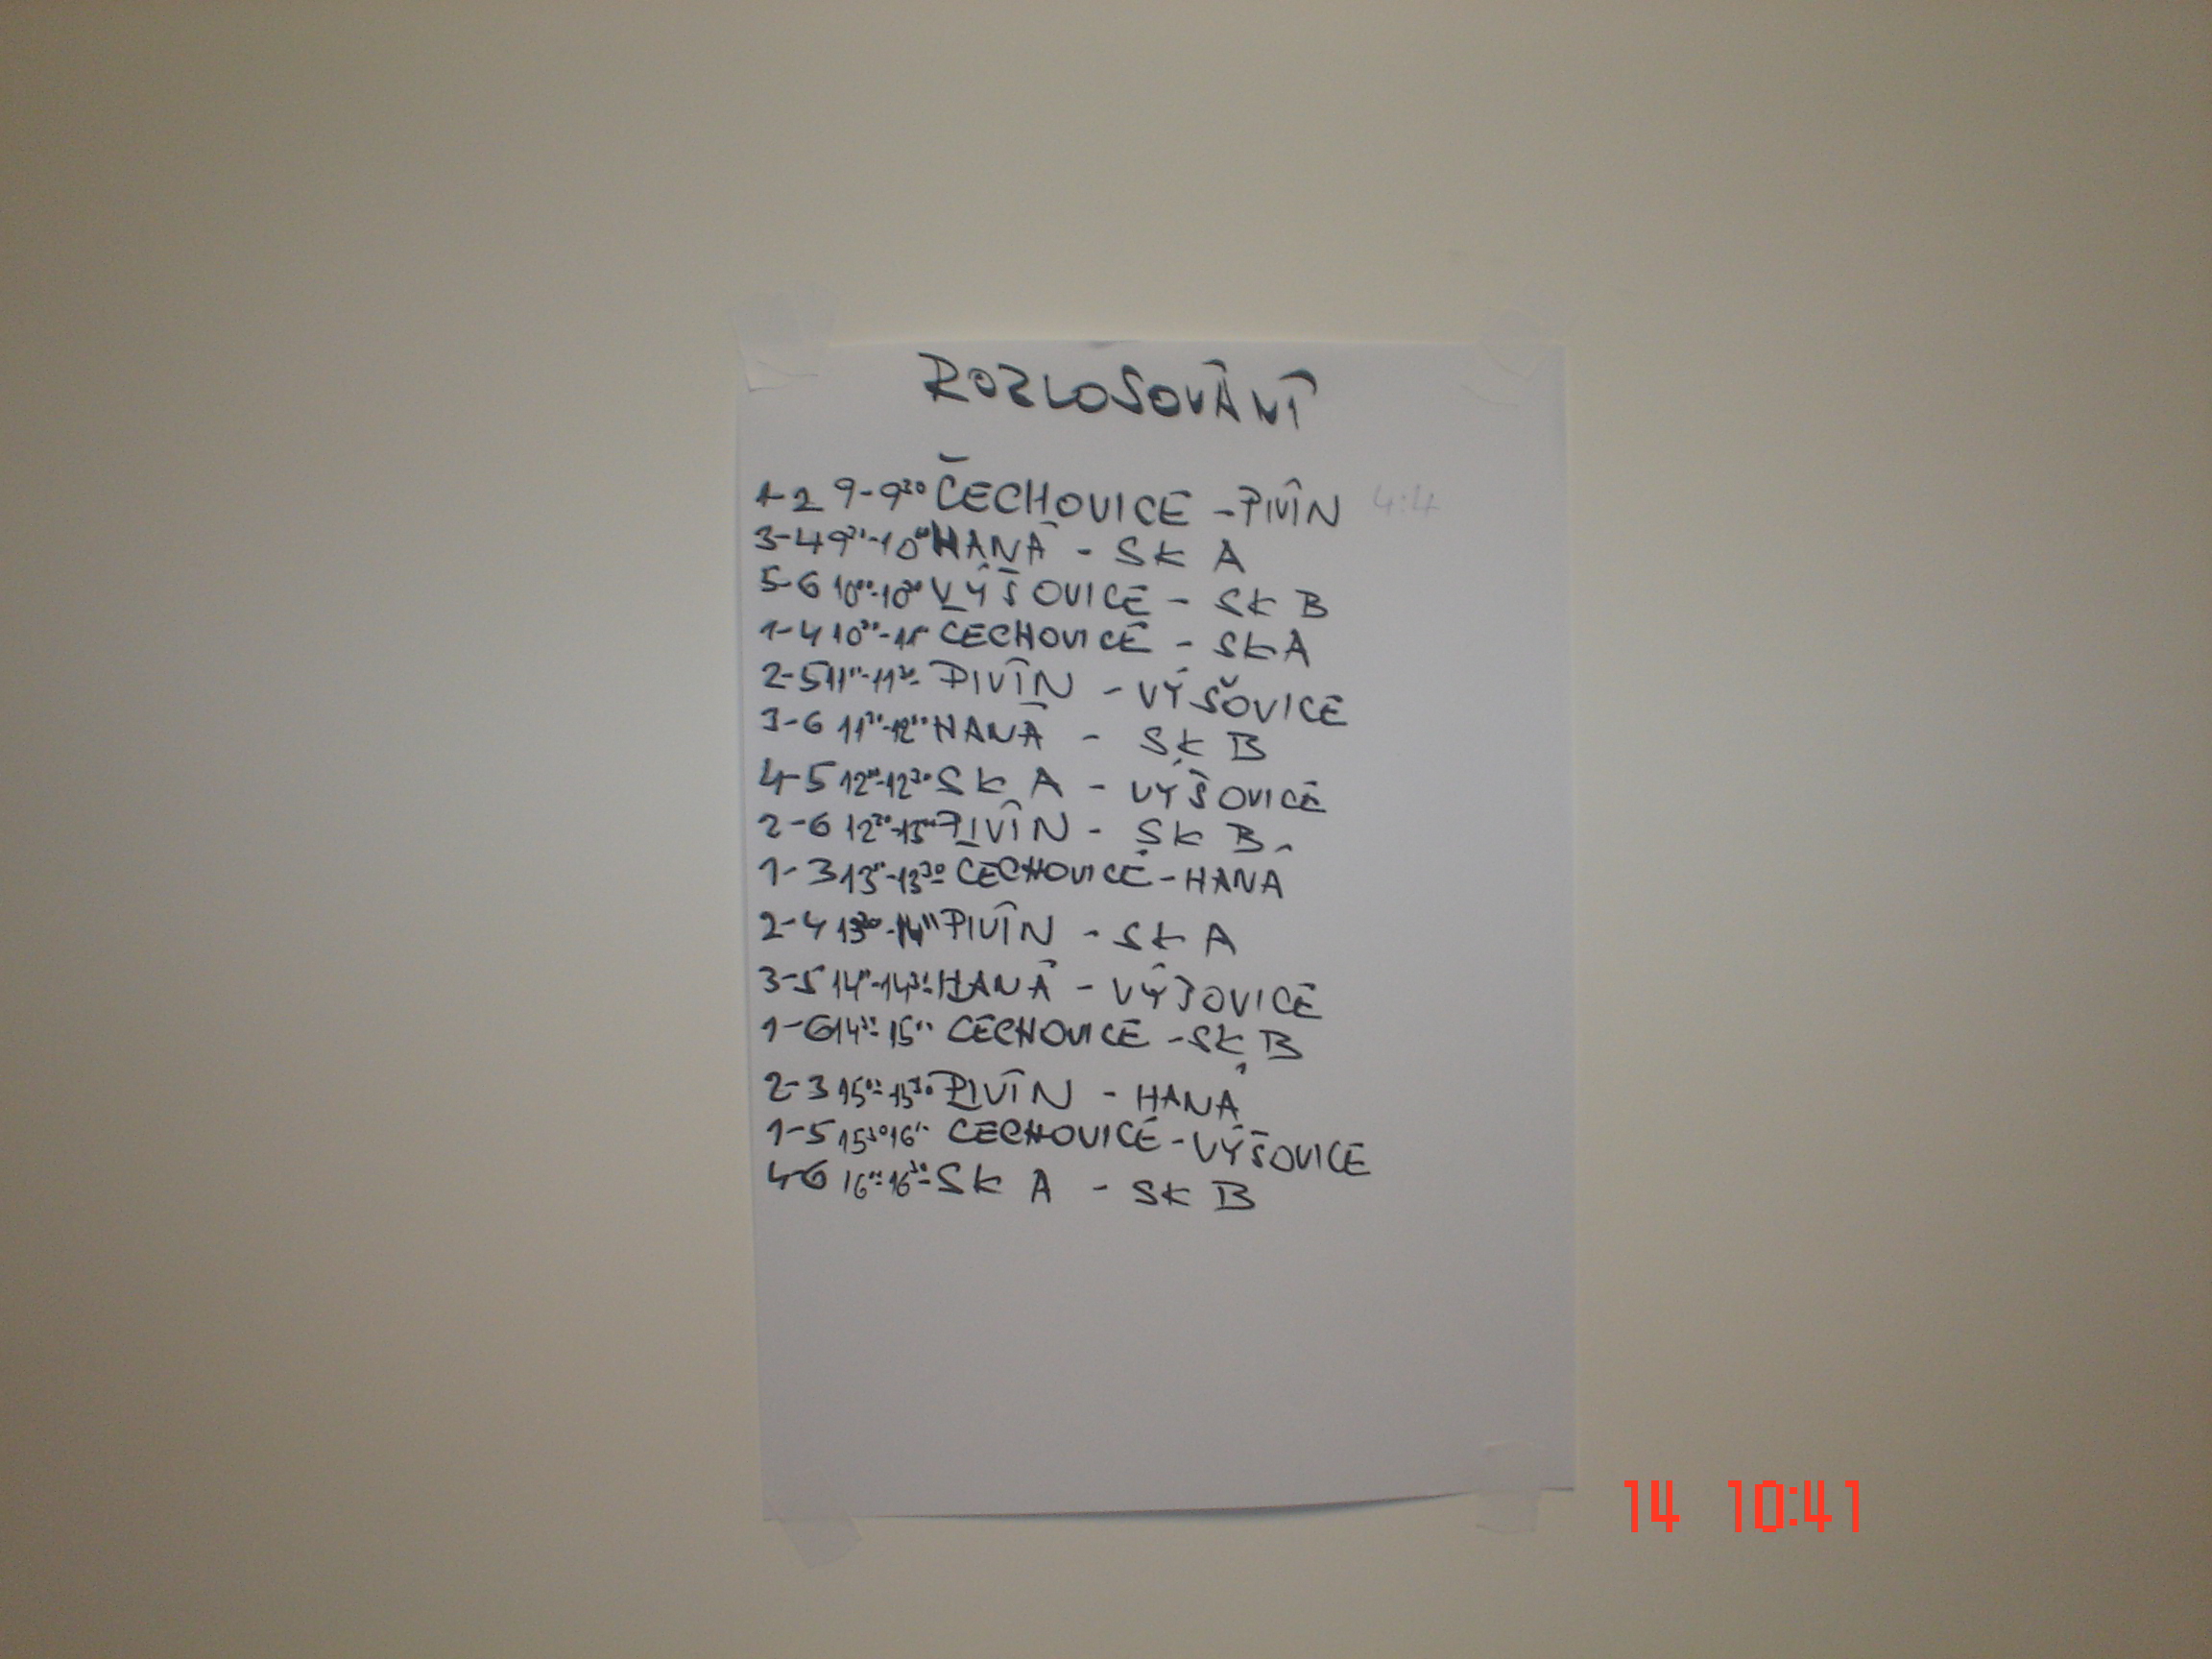 ROZLOSOVÁNÍ
1-2 9-9³⁰ ČECHOVICE - PIVÍN 4:4
3-4 9³⁰-10⁰⁰ HANÁ - SK A
5-6 10⁰⁰-10³⁰ VÝŠOVICE - SK B
1-4 10³⁰-11⁰⁰ ČECHOVICE - SK A
2-5 11⁰⁰-11³⁰ PIVÍN - VÝŠOVICE
3-6 11³⁰-12⁰⁰ HANÁ - SK B
4-5 12⁰⁰-12³⁰ SK A - VÝŠOVICE
2-6 12³⁰-13⁰⁰ PIVÍN - SK B
1-3 13⁰⁰-13³⁰ ČECHOVICE - HANÁ
2-4 13³⁰-14⁰⁰ PIVÍN - SK A
3-5 14⁰⁰-14³⁰ HANÁ - VÝŠOVICE
1-6 14³⁰-15⁰⁰ ČECHOVICE - SK B
2-3 15⁰⁰-15³⁰ PIVÍN - HANÁ
1-5 15³⁰16⁰⁰ ČECHOVICE - VÝŠOVICE
4-6 16⁰⁰-16³⁰ SK A - SK B
14 10:41